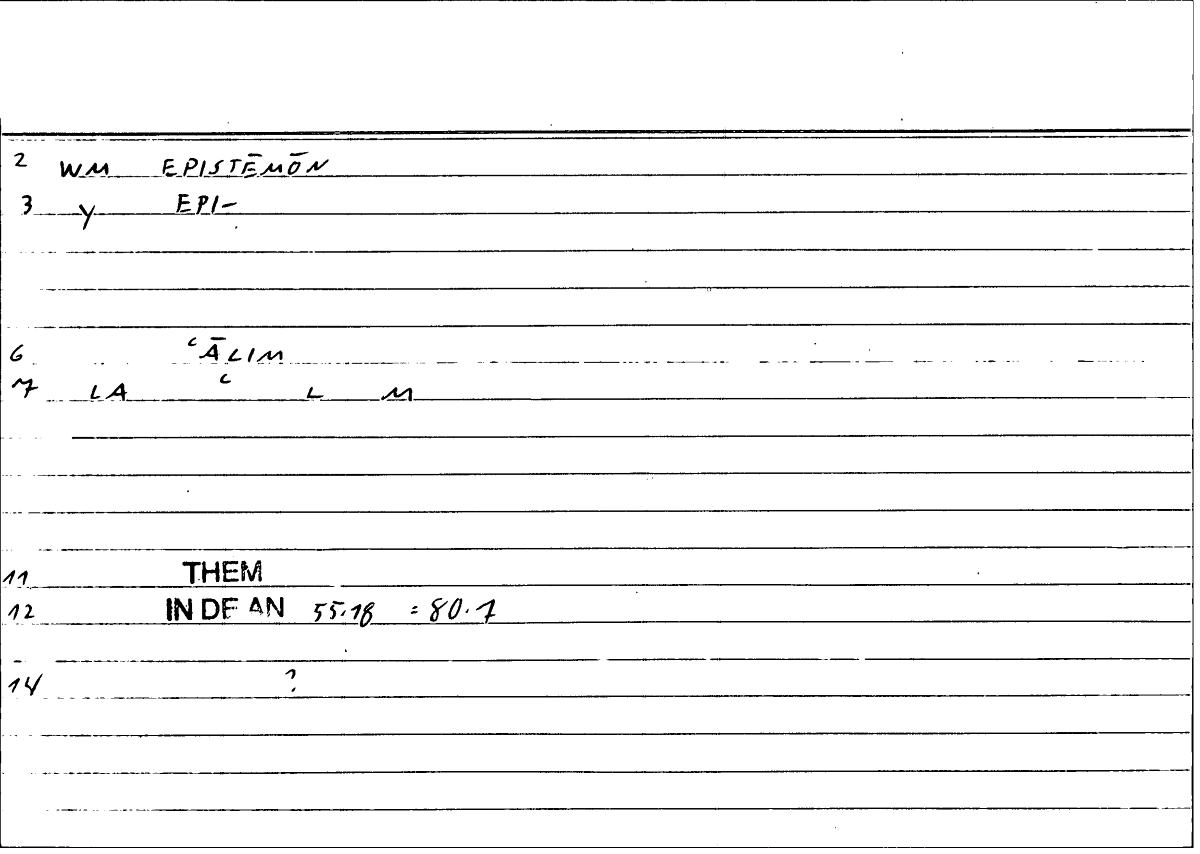 2 WM EPISTĒMŌN
3 Y EPI-
6 ʿĀLIM
7 LA ʿ L M
11 THEM
12 IN DE AN 55.18 = 80.7
14 ?